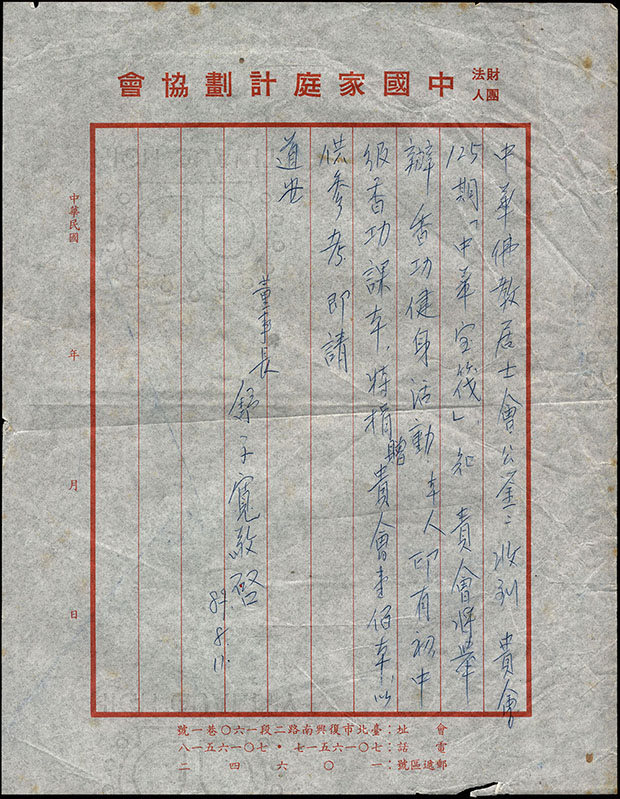 財團法人 中國家庭計劃協會
中華佛教居士會公鑒：收到 貴會
125期「中華寶筏」知 貴會將舉
辦香功健身活動 本人印有初中
級香功課本，特捐贈貴會壹佰本，以
供參考 即請
道安
董事長 舒子寬敬啓
84.8.11.
中華民國 年 月 日
會址：臺北市復興南路二段一六〇巷一號
電話：七〇一六五一七・七〇一六五一八
郵遞區號：一〇六四二